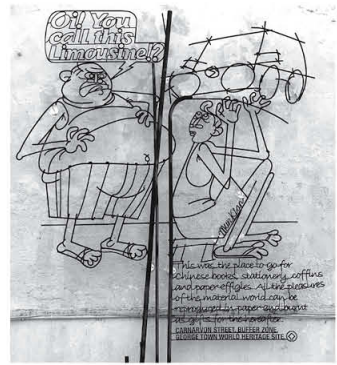 Oi! You
call this
Limousine!?
This was the place to go for
Chinese books, stationery, coffins
and paper effigies. All the pleasures
of the material world can be
reproduced in paper and burnt
as gifts for the hereafter.
CARNARVON STREET, BUFFER ZONE,
GEORGE TOWN WORLD HERITAGE SITE